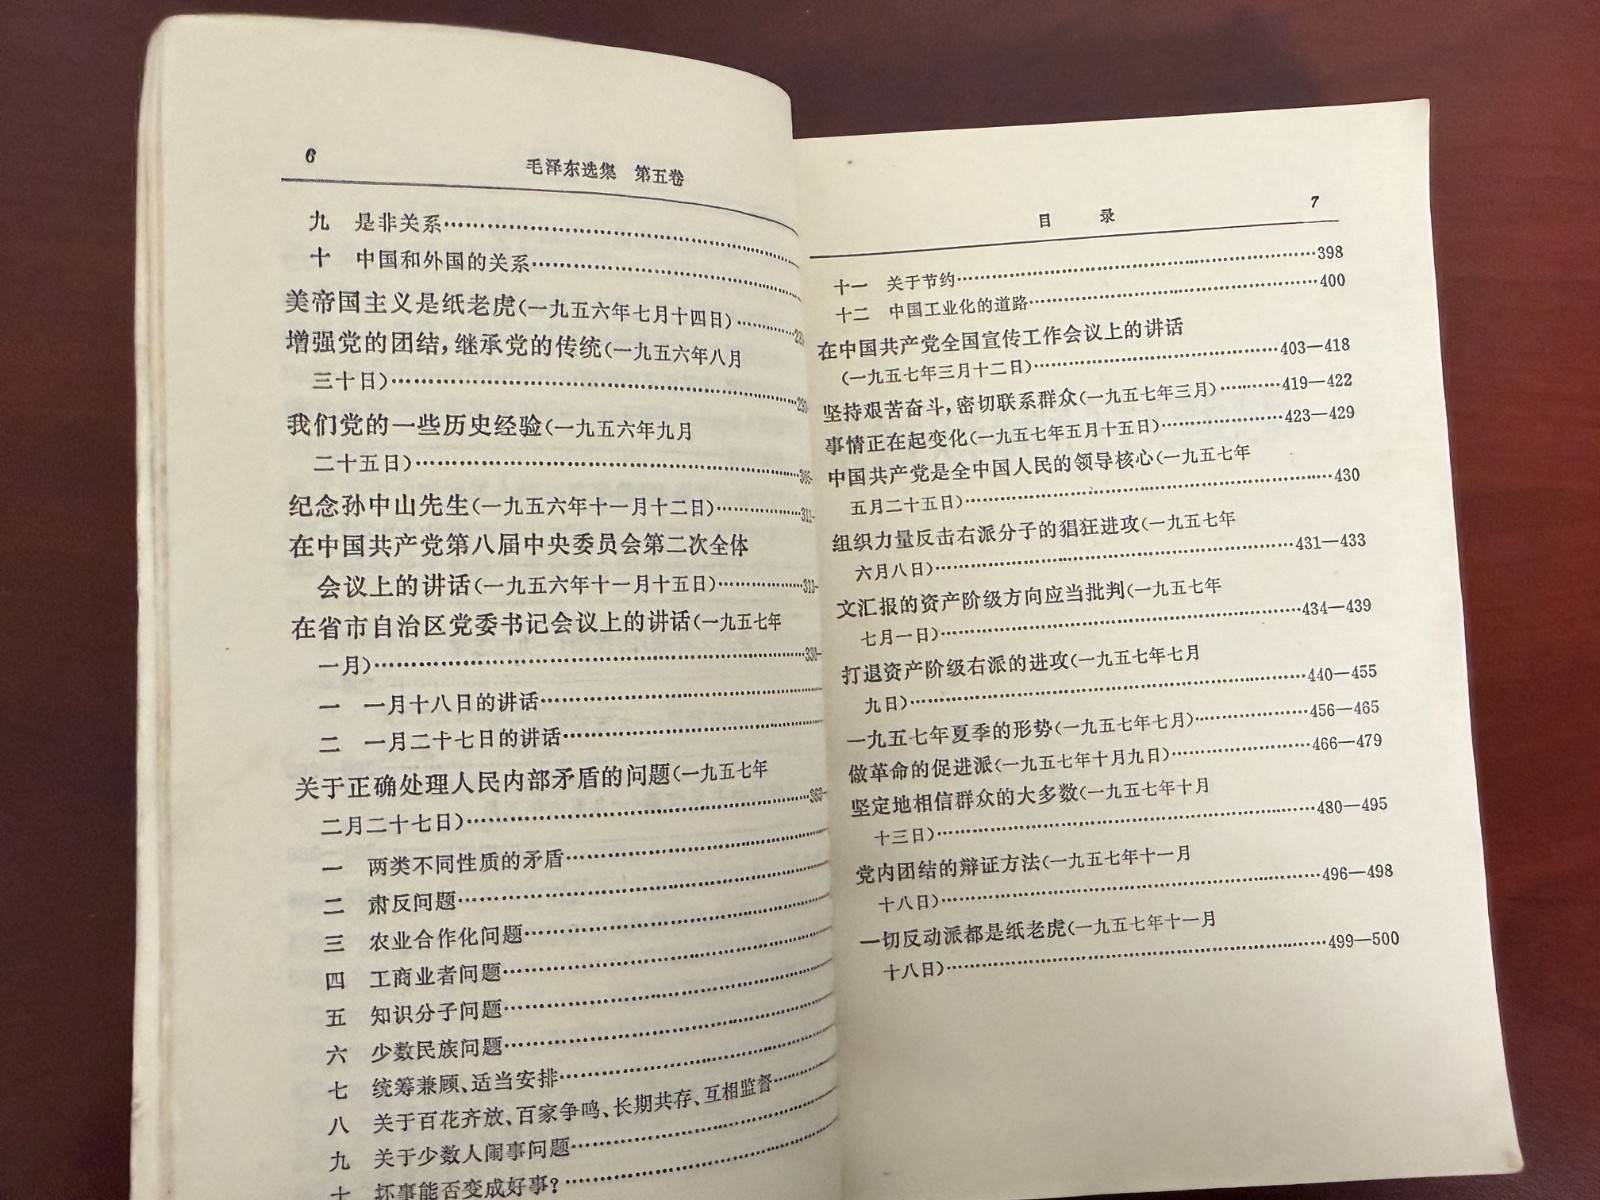 6
毛泽东选集 第五卷
九 是非关系……………………
十 中国和外国的关系……………………
美帝国主义是纸老虎(一九五六年七月十四日)…………
增强党的团结,继承党的传统(一九五六年八月
三十日)……………………
我们党的一些历史经验(一九五六年九月
二十五日)……………………
纪念孙中山先生(一九五六年十一月十二日)…………311-
在中国共产党第八届中央委员会第二次全体
会议上的讲话(一九五六年十一月十五日)…………313-
在省市自治区党委书记会议上的讲话(一九五七年
一月)……………………330-
一 一月十八日的讲话……………………
二 一月二十七日的讲话……………………
关于正确处理人民内部矛盾的问题(一九五七年
二月二十七日)……………………363-
一 两类不同性质的矛盾……………………
二 肃反问题……………………
三 农业合作化问题……………………
四 工商业者问题……………………
五 知识分子问题……………………
六 少数民族问题……………………
七 统筹兼顾、适当安排……………………
八 关于百花齐放、百家争鸣、长期共存、互相监督……
九 关于少数人闹事问题……………………
十 坏事能否变成好事?……………………
目 录
7
十一 关于节约……………………398
十二 中国工业化的道路……………………400
在中国共产党全国宣传工作会议上的讲话
(一九五七年三月十二日)……………………403—418
坚持艰苦奋斗,密切联系群众(一九五七年三月)…………419—422
事情正在起变化(一九五七年五月十五日)…………423—429
中国共产党是全中国人民的领导核心(一九五七年
五月二十五日)……………………430
组织力量反击右派分子的猖狂进攻(一九五七年
六月八日)……………………431—433
文汇报的资产阶级方向应当批判(一九五七年
七月一日)……………………434—439
打退资产阶级右派的进攻(一九五七年七月
九日)……………………440—455
一九五七年夏季的形势(一九五七年七月)…………456—465
做革命的促进派(一九五七年十月九日)…………466—479
坚定地相信群众的大多数(一九五七年十月
十三日)……………………480—495
党内团结的辩证方法(一九五七年十一月
十八日)……………………496—498
一切反动派都是纸老虎(一九五七年十一月
十八日)……………………499—500